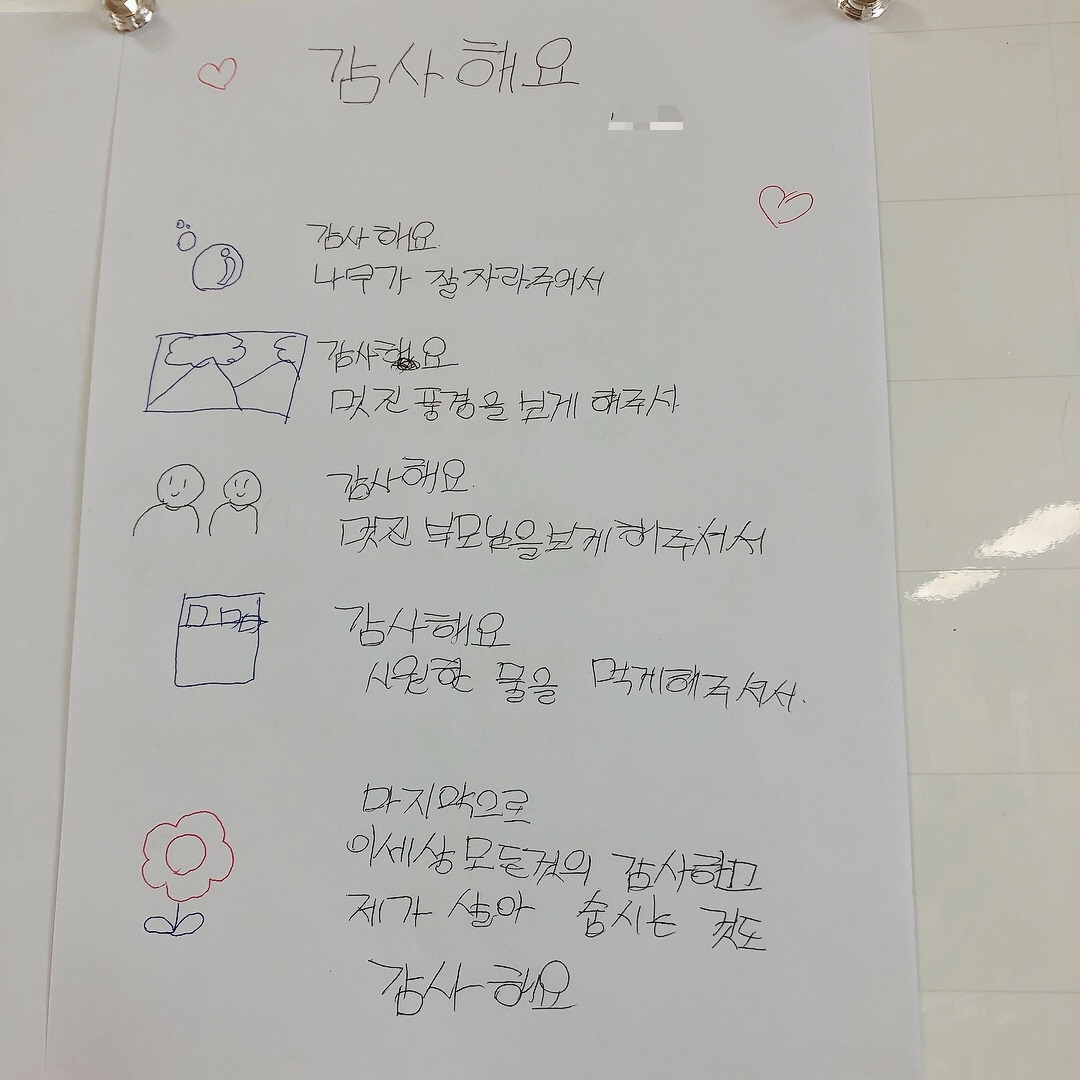 감사해요
감사해요.
나무가 잘자라주어서
감사해요
멋진 풍경을 보게 해주서
감사해요.
멋진 부모님을보게해주셔서
감사해요
시원한 물을 먹게해주셔서.
마지막으로
이세상모든것의 감사하고
제가 살아 숨시는 것도
감사해요